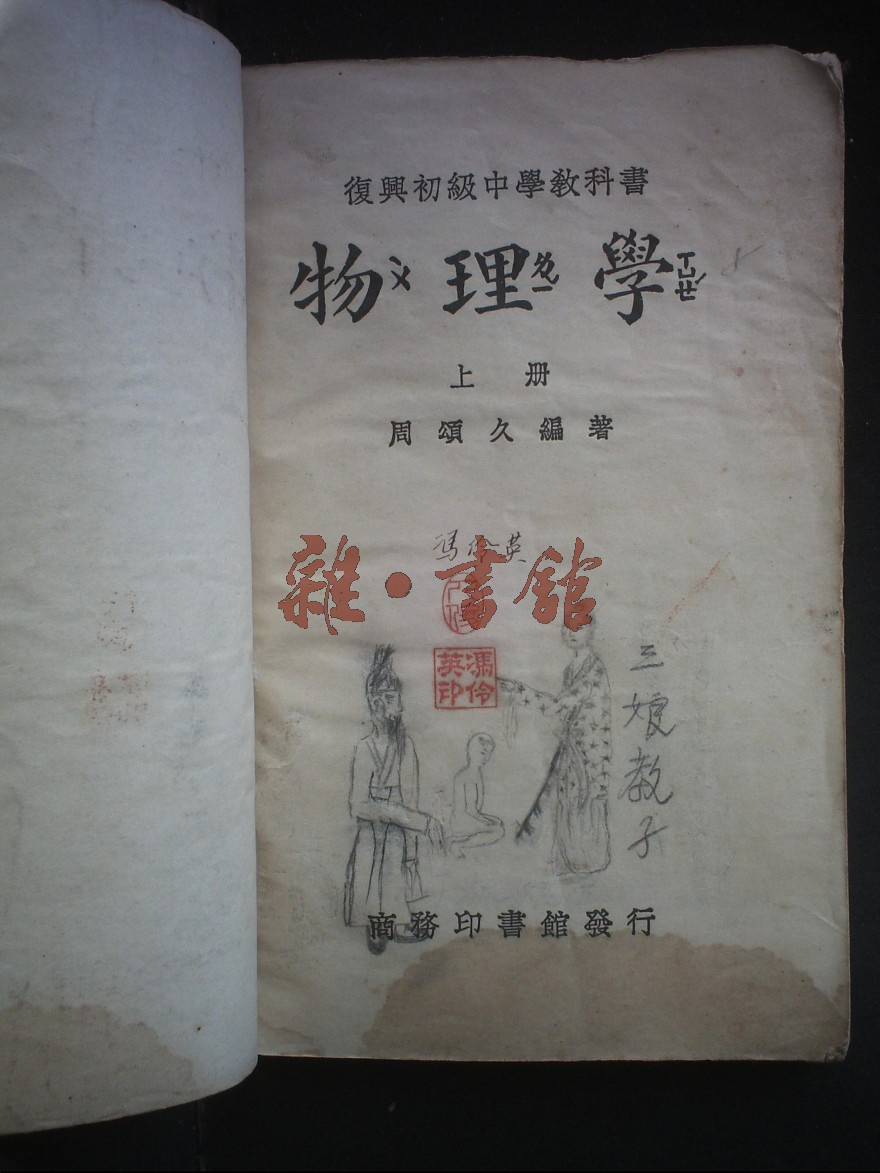 復興初級中學教科書
物ㄨˋ理ㄌㄧˇ學ㄒㄩㄝˊ
上册
周頌久編著
馮伶英
雜·書館
馮伶英印
三娘教子
商務印書館發行